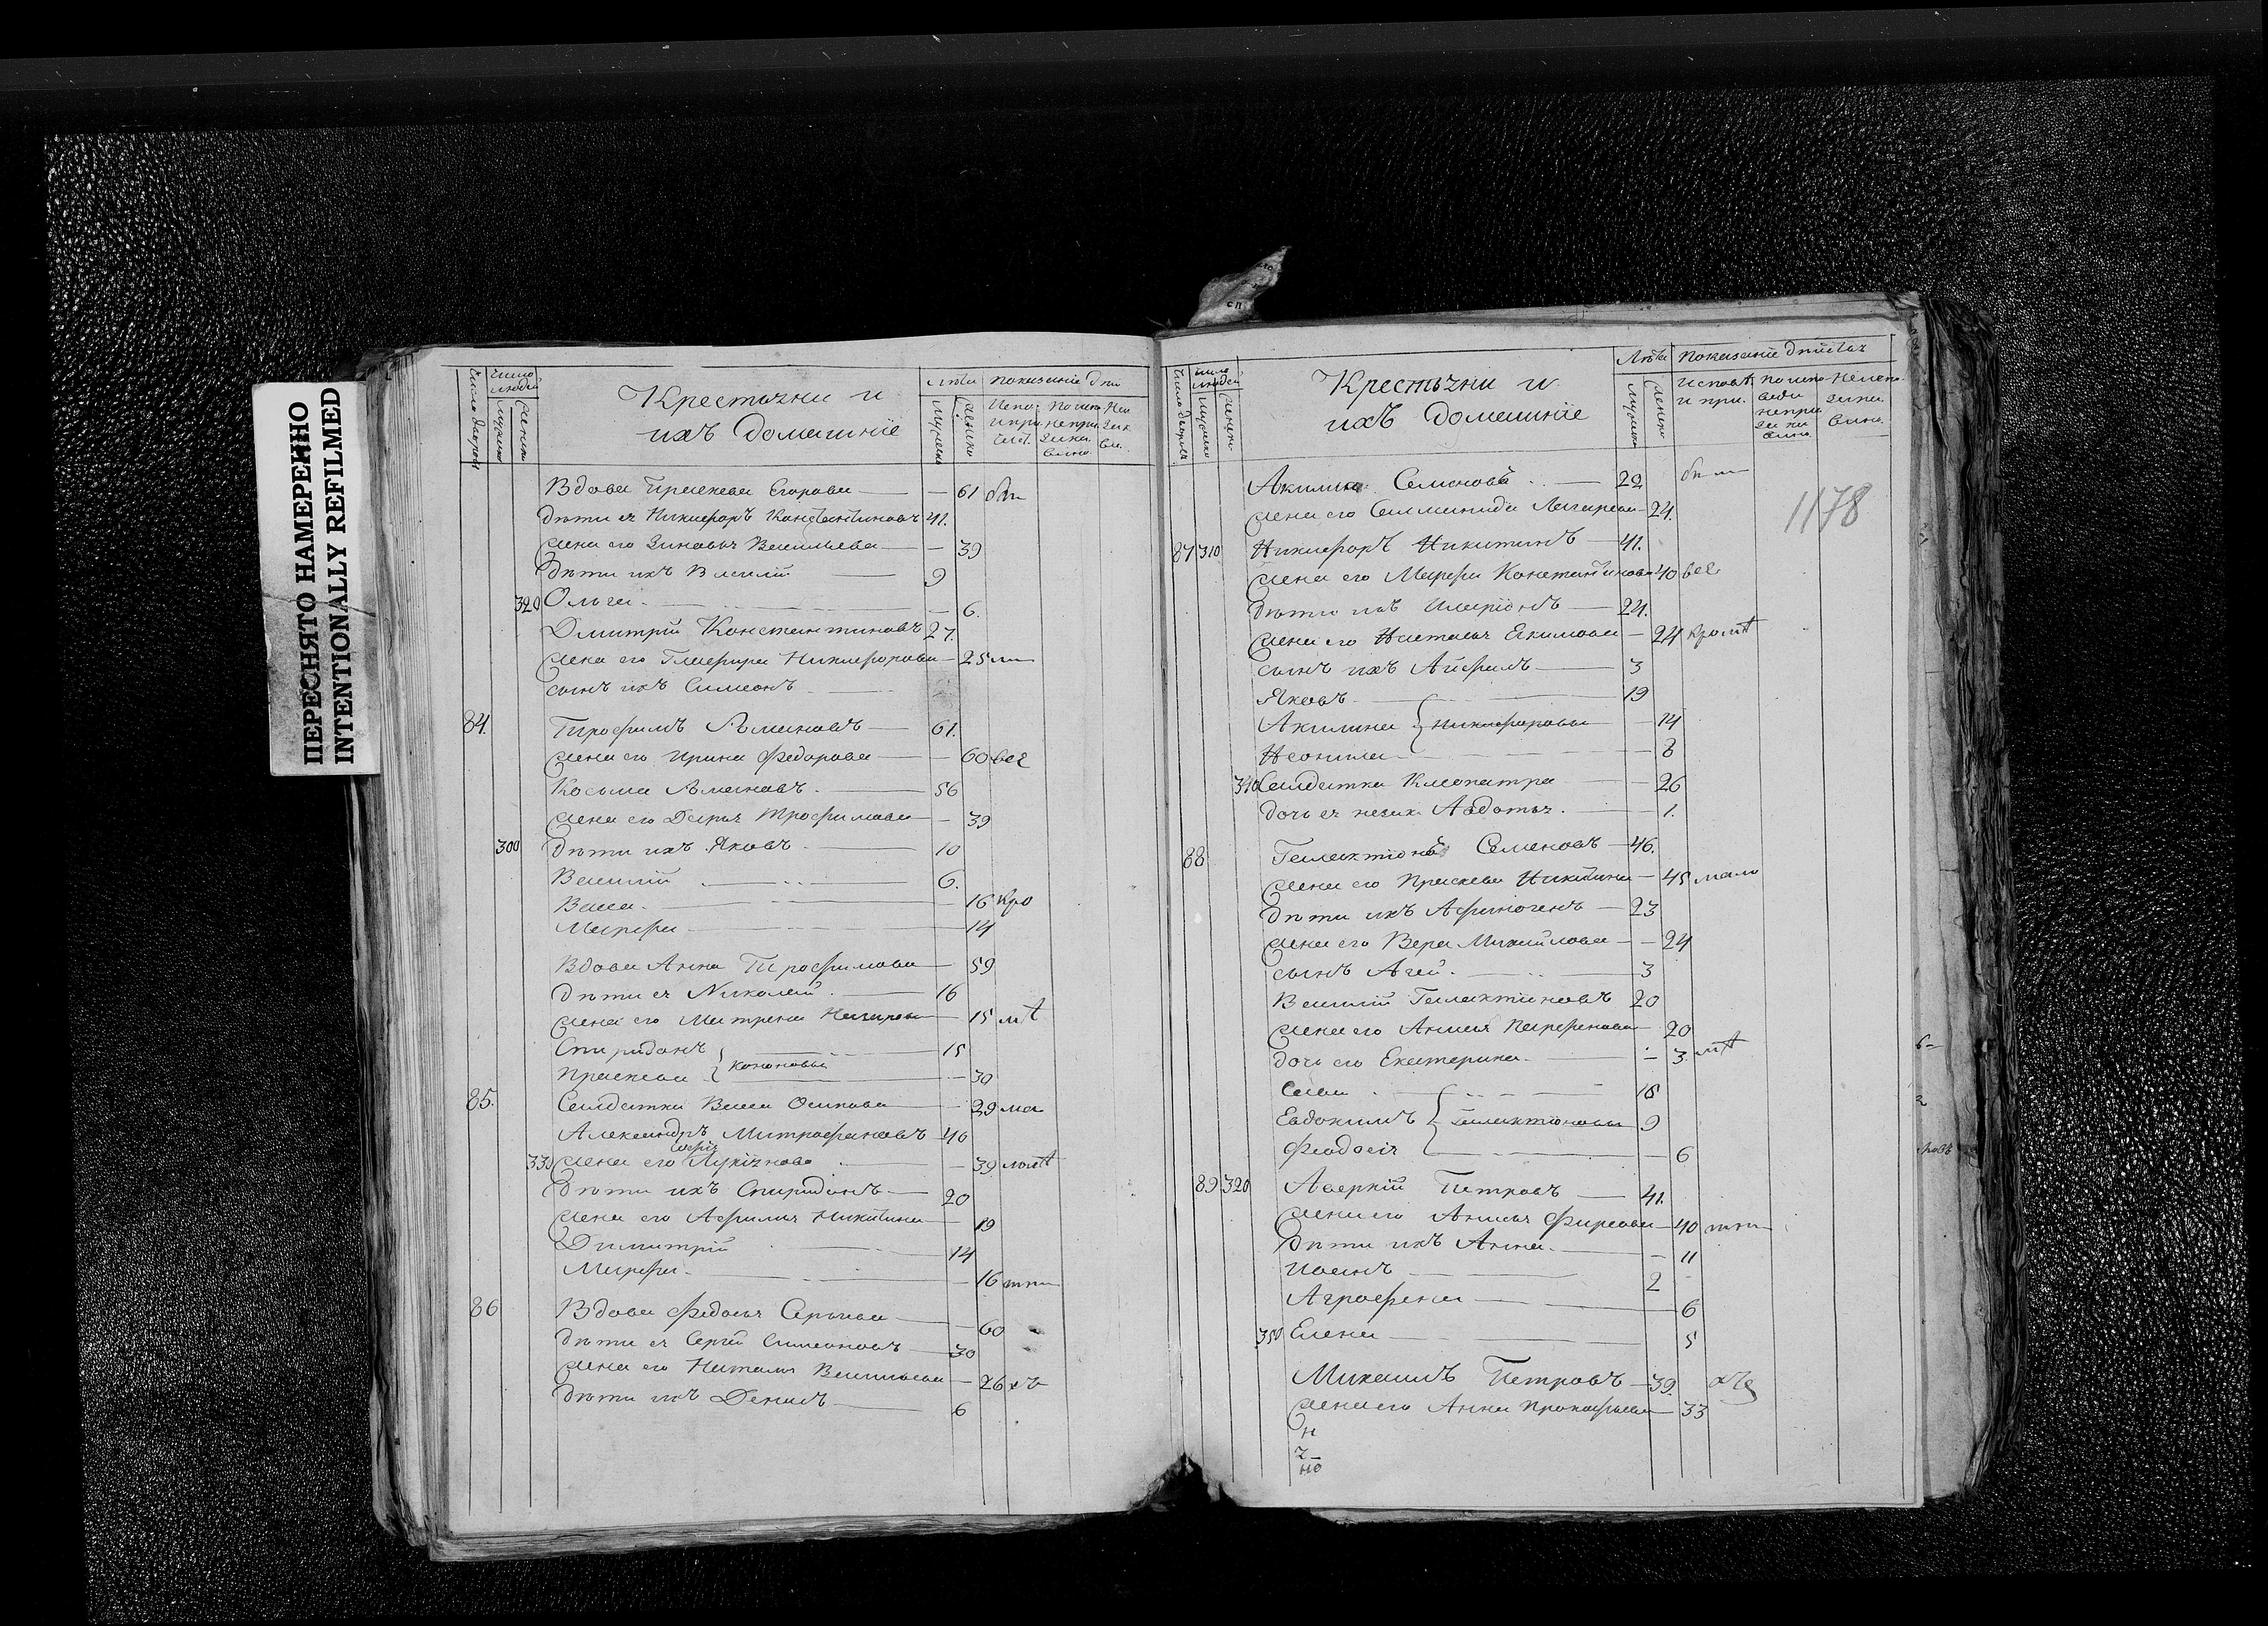 ПЕРЕСНЯТО НАМЕРЕННО
INTENTIONALLY REFILMED
Число дворовъ
Число людей
Мужеска
Женска
Крестьяни и
ихъ домашніе
Лѣта
показаніе
Вдова Праскева Егорова — 61
дѣти ея Никифоръ Константиновъ 41.
жена его Зиновья Васильева — 39
дѣти ихъ Василій 9
320 Ольга — 6.
Дмитрій Константиновъ 27.
жена его Глафира Никифорова — 25
сынъ ихъ Симеонъ
84. Трофимъ 61.
жена его Ирина Федорова — 60
Косьма 56
жена его Дарья Трофимова — 39
300 дѣти ихъ Яковъ 10
Василій 6.
Васса — 16 кро
Марфа — 14
Вдова Анна Трофимова — 59
дѣти ея Николай 16
жена его Матрена Назарова — 15
Спиридонъ 15
Праскева } Кононовы — 30
85. Солдатка Васса Осипова — 29
Александръ Митрофановъ 40
330 жена его Лукіянова — 39
дѣти ихъ Спиридонъ 20
жена его Афимья Никитина — 19
Димитрій 14
Марфа — 16
86 Вдова Федосья Сергѣева — 60
дѣти ея Сергѣй Симеоновъ 30
жена его Наталья Васильева — 26
дѣти ихъ Денисъ 6
Число дворовъ
Число людей
Мужеска
Женск.
Крестьяни и
ихъ домашніе
Лѣта
Показаніе дѣйства
Мужска
Женска
1178
Акилина Семенова 22
жена его Соломонида Лазарева — 24.
87 310 Никифоръ Никитинъ 41.
жена его Марфа Константинова 40
дѣти ихъ Иларіонъ 24.
жена его Наталья Екимова — 24 кромѣ
сынъ ихъ 3
Яковъ 19
Акилина } Никифоровы — 14
Неонила — 8
340 Солдатка Клеопатра — 26
дочь ея незак. Авдотья — 1.
88 Галактіонъ Семеновъ 46.
жена его Праскева Никитина — 45
дѣти ихъ Афиногенъ 23
жена его Вера Михайлова — 24
сынъ Агей 3
Василій Галактіоновъ 20
жена его Анисья Парфенова 20
дочь его Екатерина — 3
Сава 18
Евдокимъ } Галактіоновы 9
Феодосія — 6
89 320 Аверкій Петровъ 41.
жена его Анисья Фирсова — 40
дѣти ихъ Анна — 11
Иоанъ 2
Аграфена — 6
350 Елена 5
Михаилъ Петровъ 39.
жена его Анна Прокофьева 33